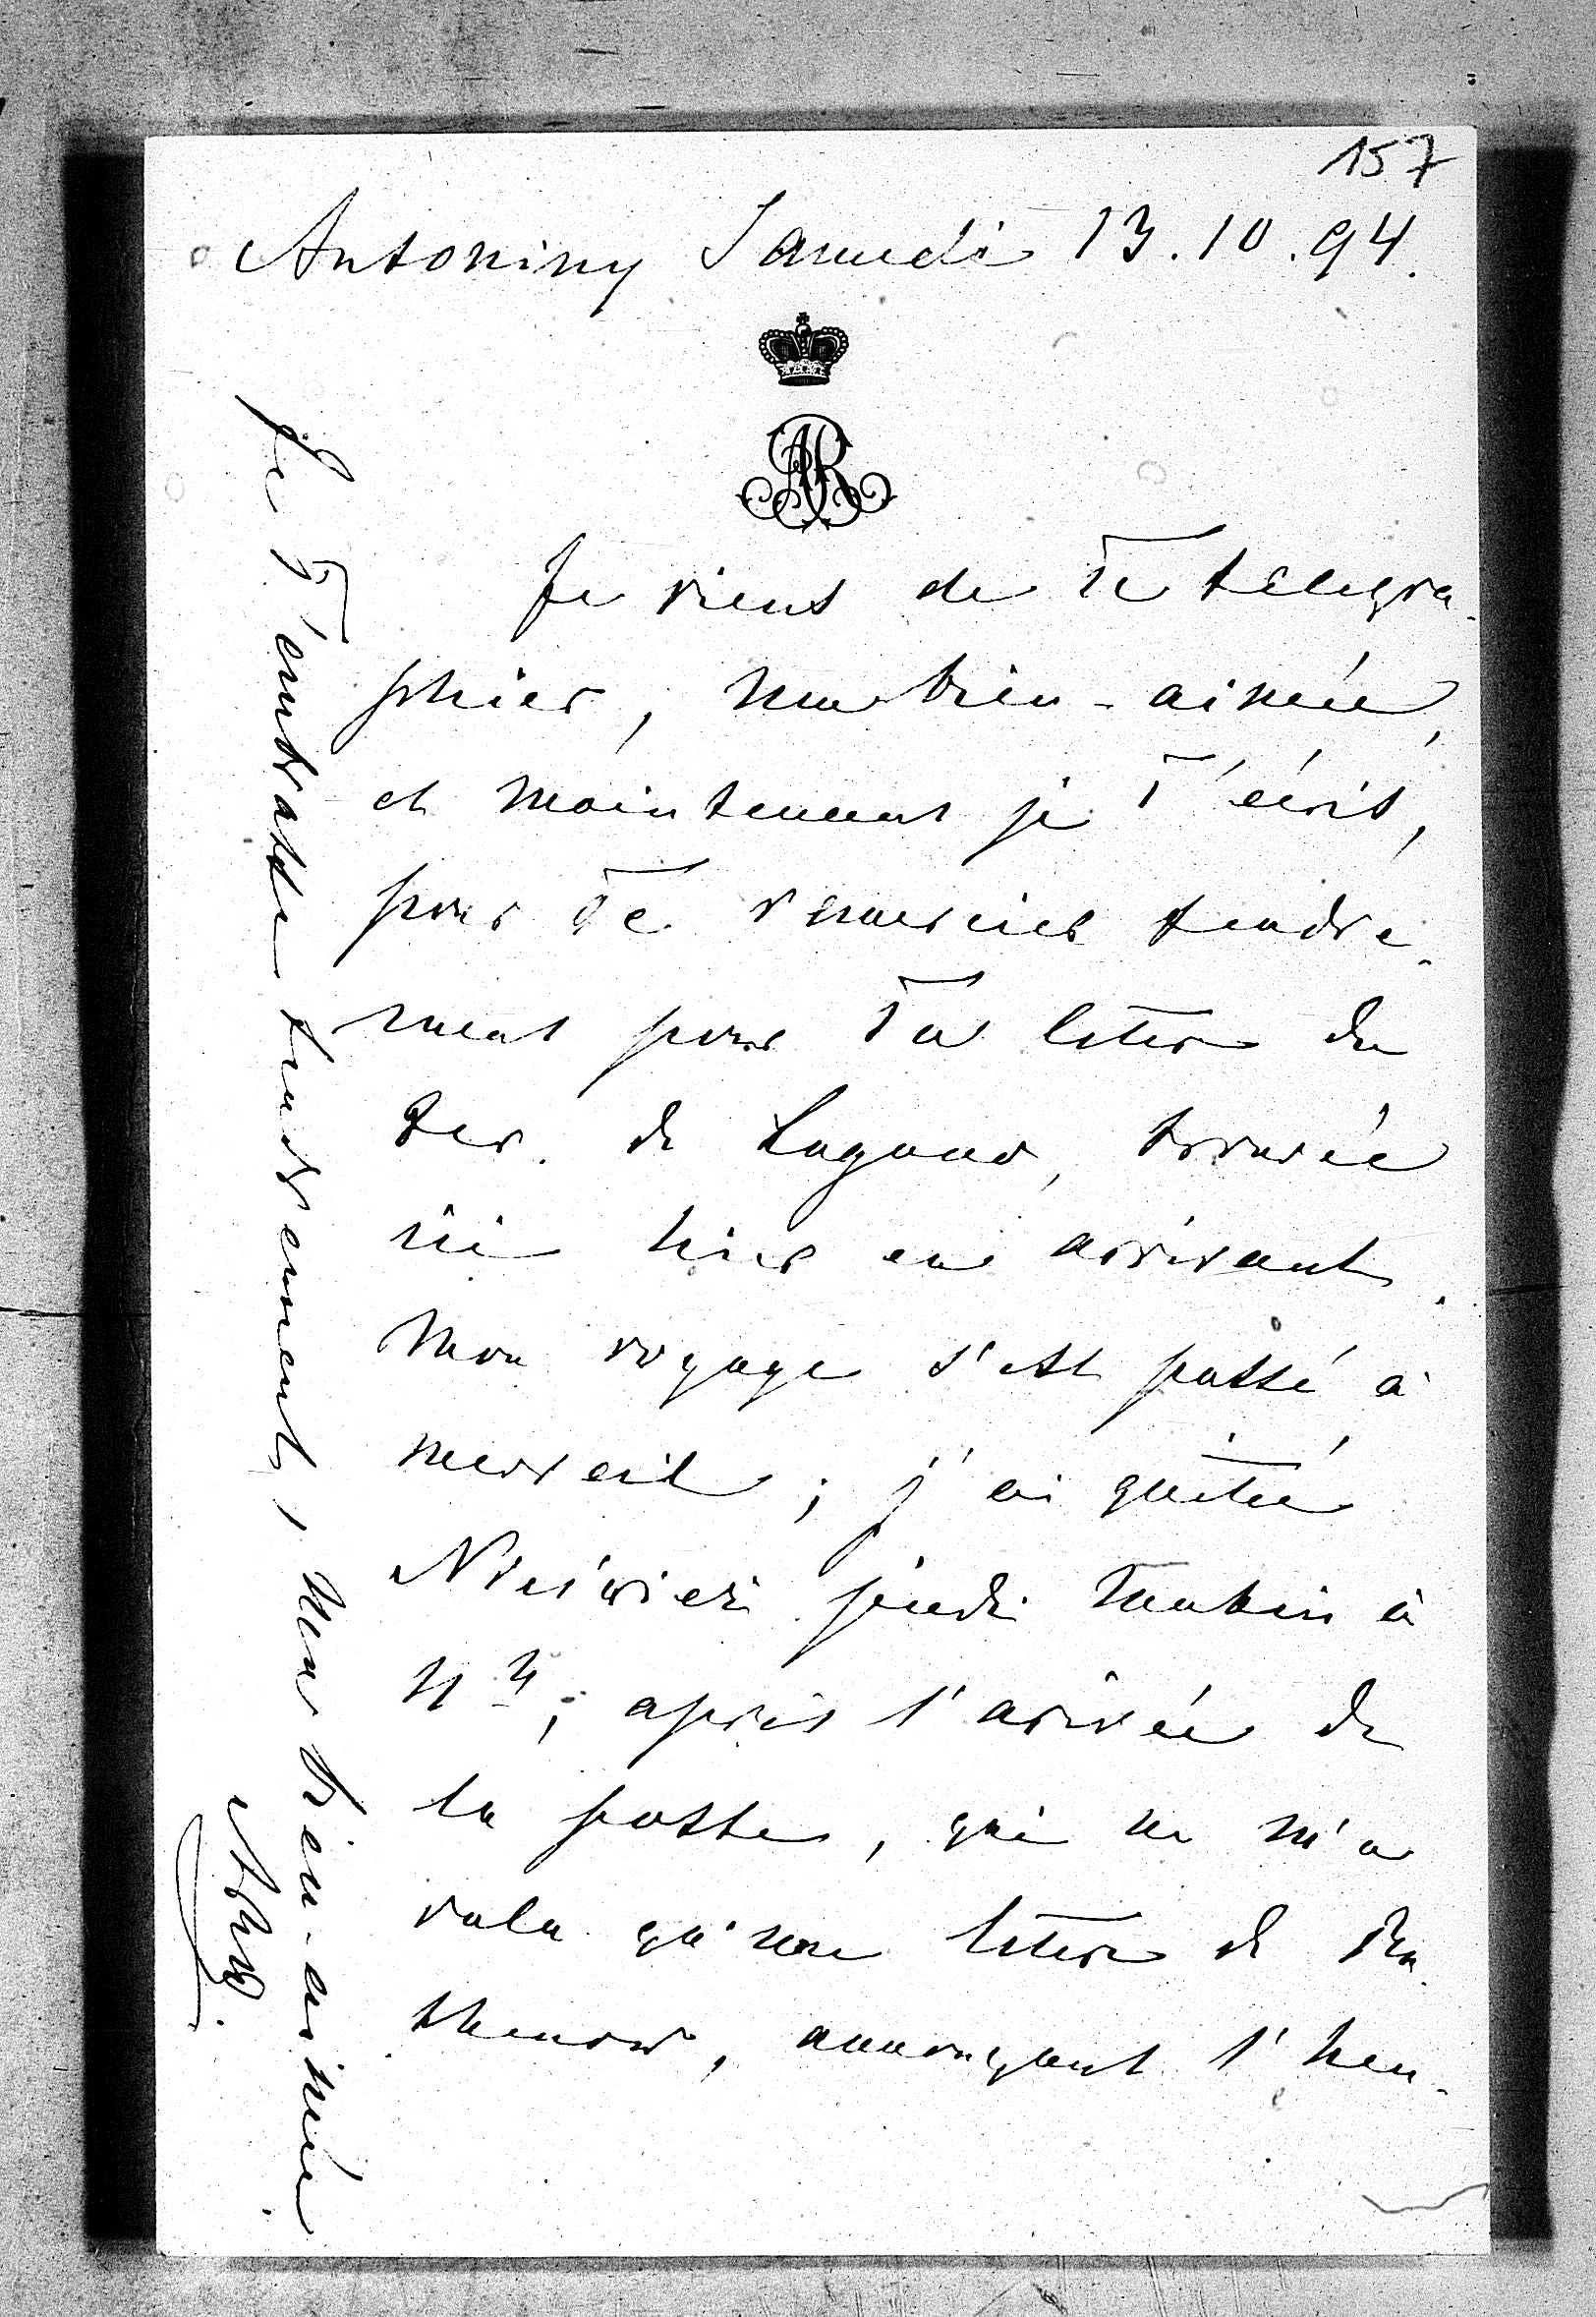 157
Antoniny Samedi 13.10.94.
AR
Je viens de Te télégra-
phier, ma bien-aimée,
et maintenant je T'écris,
pour Te remercier tendre-
ment pour Ta lettre du
de Lugano, trouvée
ici hier en arrivant.
Mon voyage s'est passé à
merveil; j'ai quitté
Nieśwież jeudi matin à
11 h; après l'arivée de
la poste, qui ne m'a
valu qu'une lettre de Ra-
thenow, annonçant l'heu-
Je T'embrasse tendrement, ma bien-aimée